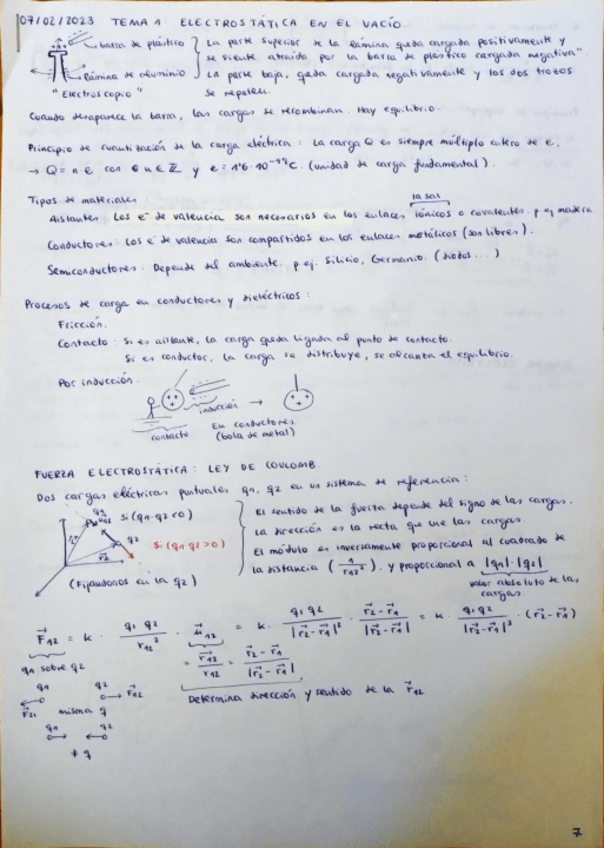 07/02/2023 TEMA 1: ELECTROSTÁTICA EN EL VACÍO
barra de plástico
lámina de aluminio
"Electroscopio"
La parte superior de la lámina queda cargada positivamente y
se siente atraída por la barra de plástico cargada negativa".
La parte baja, queda cargada negativamente y los dos trozos
se repelen.
Cuando desaparece la barra, las cargas se recombinan. Hay equilibrio.
Principio de cuantización de la carga eléctrica: La carga Q es siempre múltiplo entero de e.
→ Q = n e con n ∈ ℤ y e = 1'6·10⁻¹⁹ C. (unidad de carga fundamental).
Tipos de materiales
la sal
Aislantes. Los e⁻ de valencia son necesarios en los enlaces iónicos o covalentes. p ej madera
Conductores: Los e⁻ de valencia son compartidos en los enlaces metálicos (son libres).
Semiconductores. Depende del ambiente. p ej. Silicio, Germanio. (diodos...)
Procesos de carga en conductores y dieléctricos:
Fricción.
Contacto: Si es aislante, la carga queda ligada al punto de contacto.
Si es conductor, la carga se distribuye, se alcanza el equilibrio.
Por inducción.
inducción →
contacto
En conductores
(bola de metal)
FUERZA ELECTROSTÁTICA: LEY DE COULOMB.
Dos cargas eléctricas puntuales q₁, q₂ en un sistema de referencia:
q₁
Si (q₁·q₂<0)
q₂
Si (q₁ q₂ >0)
(Fijándonos en la q₂)
El sentido de la fuerza depende del signo de las cargas.
La dirección es la recta que une las cargas
El módulo es inversamente proporcional al cuadrado de
la distancia (1/r₁₂²), y proporcional a |q₁|·|q₂|
valor absoluto de las
cargas.
F⃗₁₂ = k · q₁ q₂ / r₁₂² · u⃗₁₂ = k · q₁ q₂ / |r⃗₂ - r⃗₁|² · (r⃗₂ - r⃗₁) / |r⃗₂ - r⃗₁| = k · q₁ q₂ / |r⃗₂ - r⃗₁|³ · (r⃗₂ - r⃗₁)
q₁ sobre q₂
= r⃗₁₂ / r₁₂ = (r⃗₂ - r⃗₁) / |r⃗₂ - r⃗₁|
Determina dirección y sentido de la r⃗₁₂
q₁ q₂
F⃗₂₁ misma q F⃗₁₂
q₁ q₂
≠ q
7